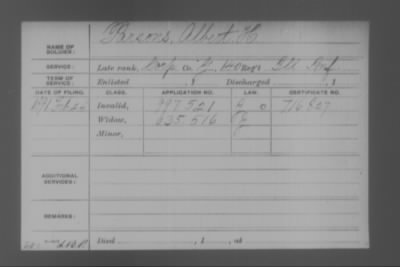 NAME OF SOLDIER: Parsons, Albert H
SERVICE: Late rank, Corp Co. 140 Reg't Ill Inf.
TERM OF SERVICE: Enlisted , 1 Discharged , 1
DATE OF FILING. CLASS. APPLICATION NO. LAW. CERTIFICATE NO.
Invalid, 997521 O 716807
Widow, 635516
Minor,
ADDITIONAL SERVICES:
REMARKS:
Died , 1 , at